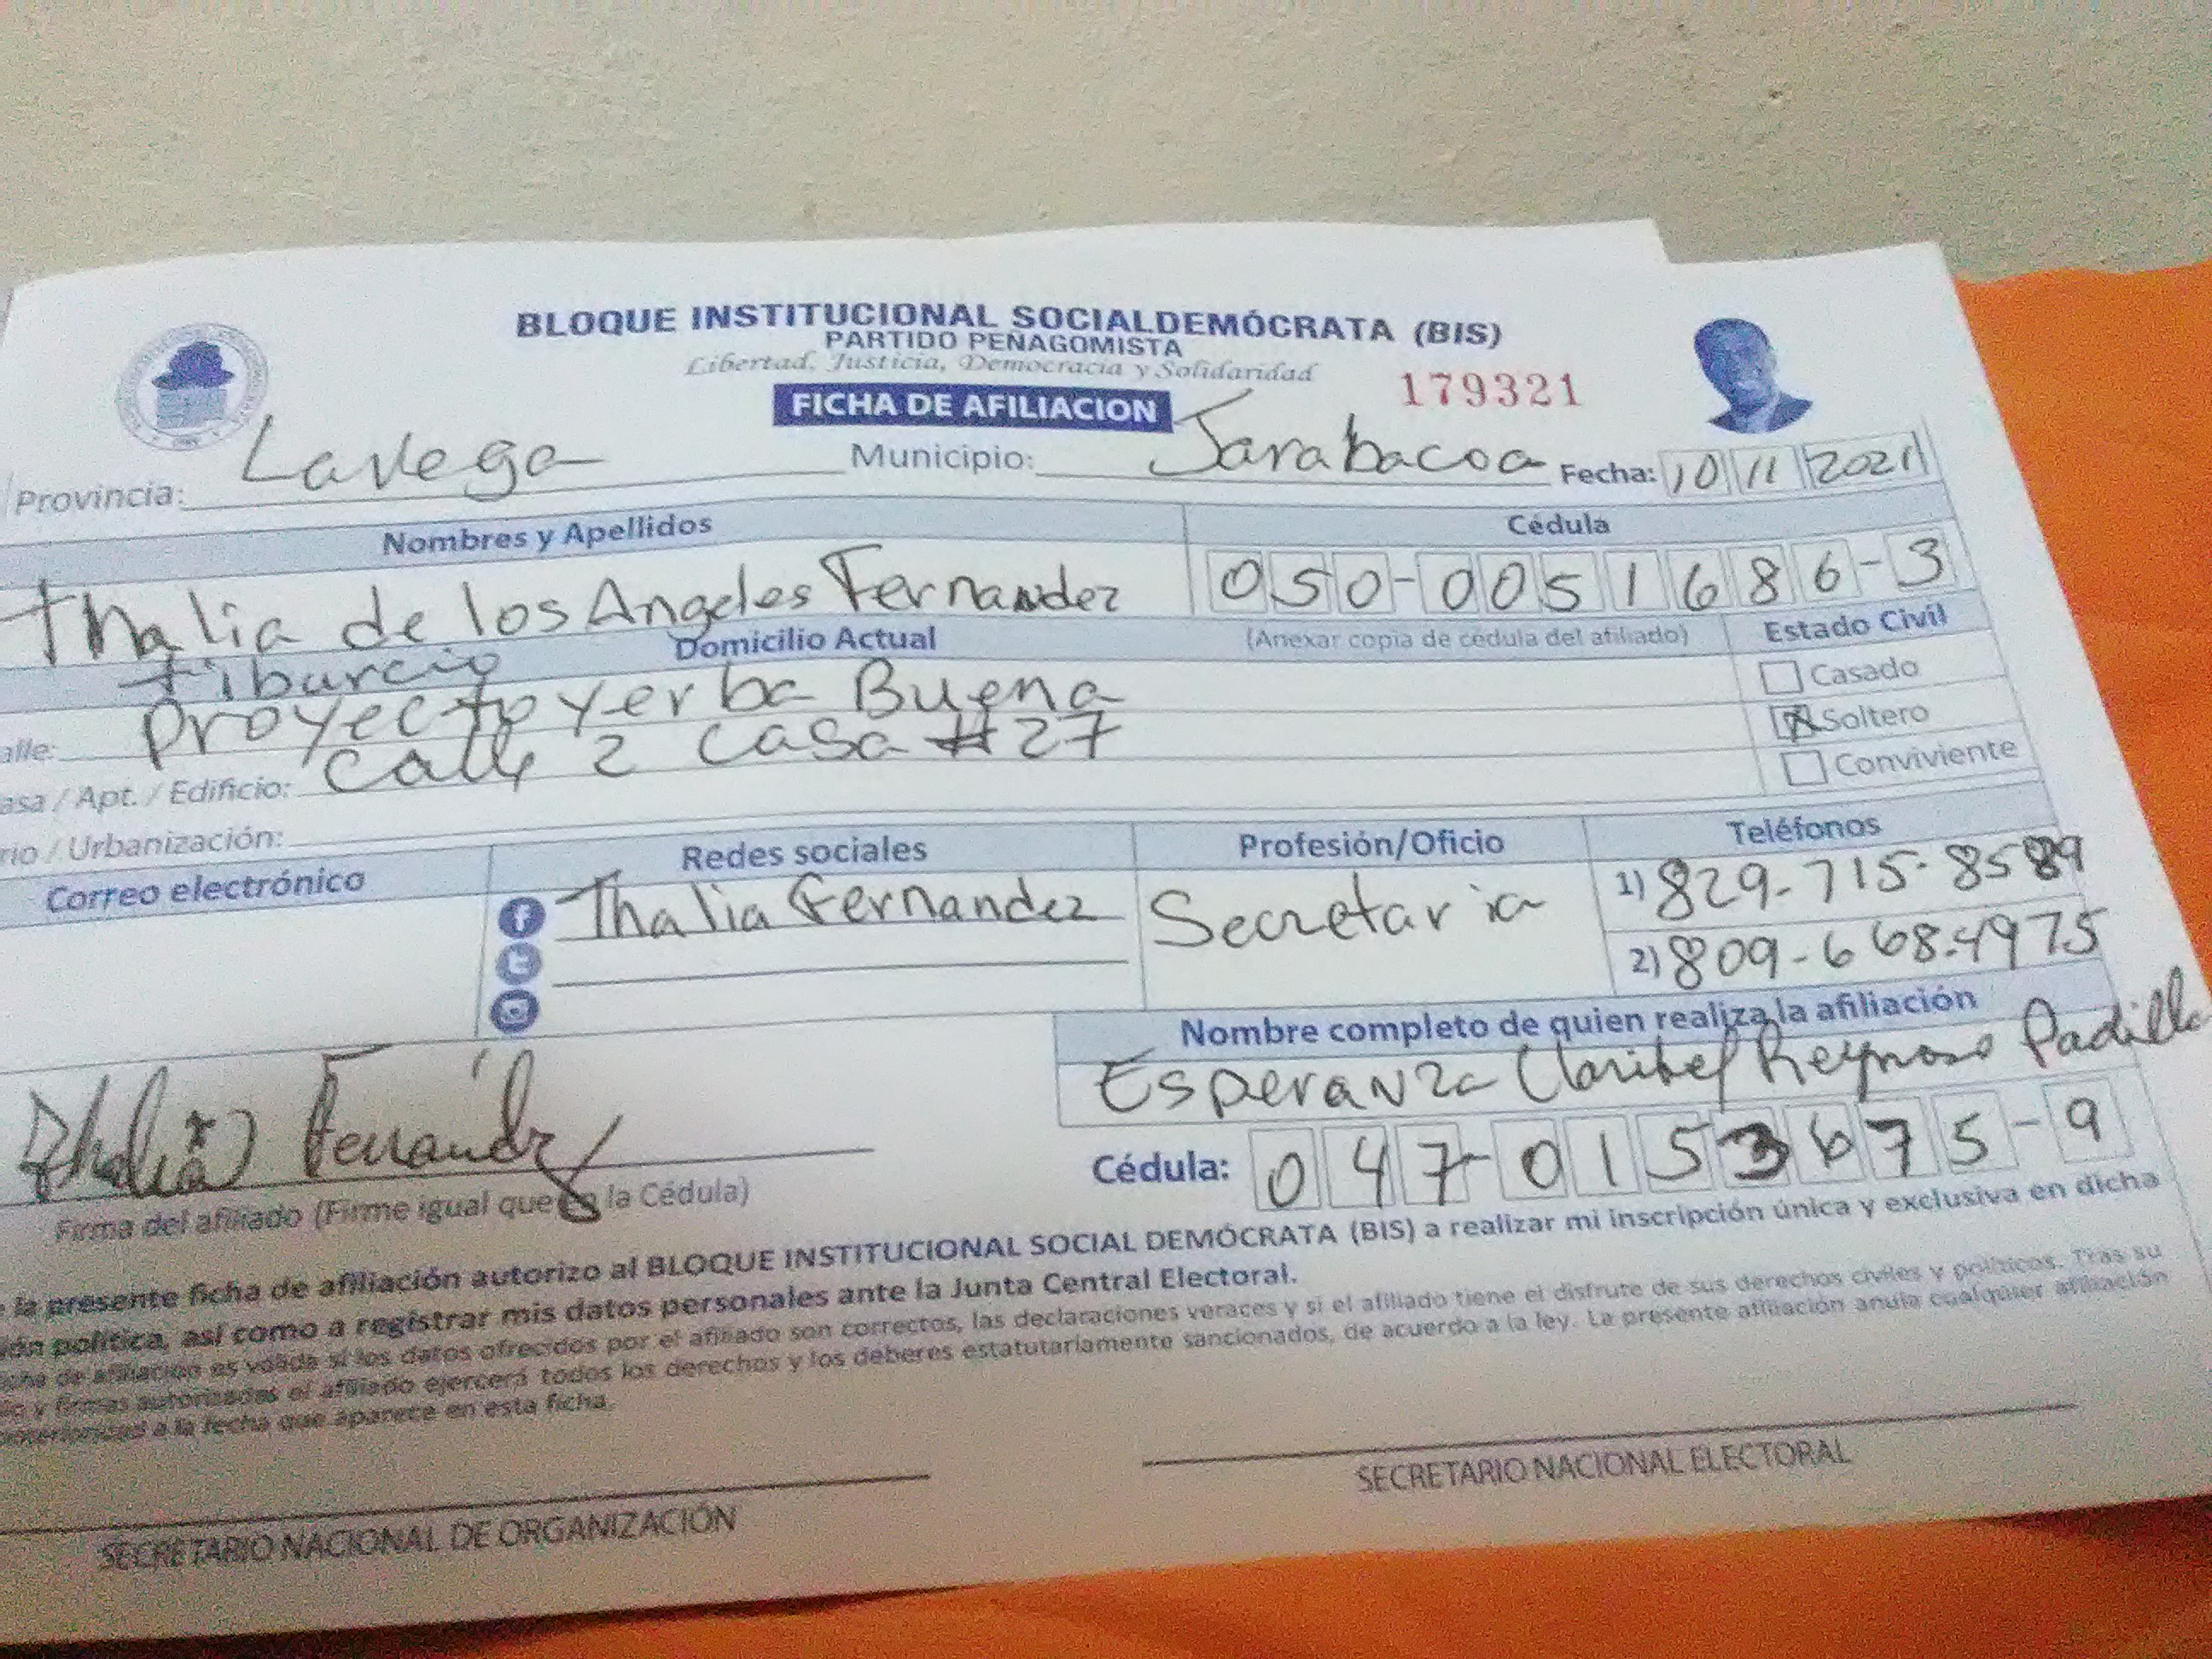 BLOQUE INSTITUCIONAL SOCIALDEMÓCRATA (BIS)
PARTIDO PEÑAGOMISTA
Libertad, Justicia, Democracia y Solidaridad
FICHA DE AFILIACION
179321
Provincia: La Vega Municipio: Jarabacoa Fecha: 10 11 2021
Nombres y Apellidos Cédula
Thalia de los Angeles Fernandez 050-0051686-3
tiburcio
Domicilio Actual (Anexar copia de cédula del afiliado) Estado Civil
Casado
alle: proyecto yerba Buena
Soltero
asa / Apt. / Edificio: calle 2 casa #27
Conviviente
rio / Urbanización:
Correo electrónico Redes sociales Profesión/Oficio Teléfonos
Thalia Fernandez Secretaria 1) 829-715-8589
2) 809-668-4975
Nombre completo de quien realiza la afiliación
Esperanza Claribel Reynoso Padilla
Thalia Fernández
Cédula: 047-0153675-9
Firma del afiliado (Firme igual que la Cédula)
la presente ficha de afiliación autorizo al BLOQUE INSTITUCIONAL SOCIAL DEMÓCRATA (BIS) a realizar mi inscripción única y exclusiva en dicha
política, así como a registrar mis datos personales ante la Junta Central Electoral.
de afiliación es válida si los datos ofrecidos por el afiliado son correctos, las declaraciones veraces y si el afiliado tiene el disfrute de sus derechos civiles y políticos. Tras su
y firmas autorizadas el afiliado ejercerá todos los derechos y los deberes estatutariamente sancionados, de acuerdo a la ley. La presente afiliación anula cualquier afiliación
a la fecha que aparece en esta ficha.
SECRETARIO NACIONAL DE ORGANIZACIÓN SECRETARIO NACIONAL ELECTORAL